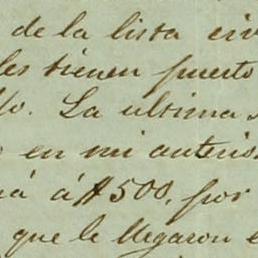 de la lista civ
les tienen puerto
La ultima
en mi anterio
á $500, por
que le llegaron e